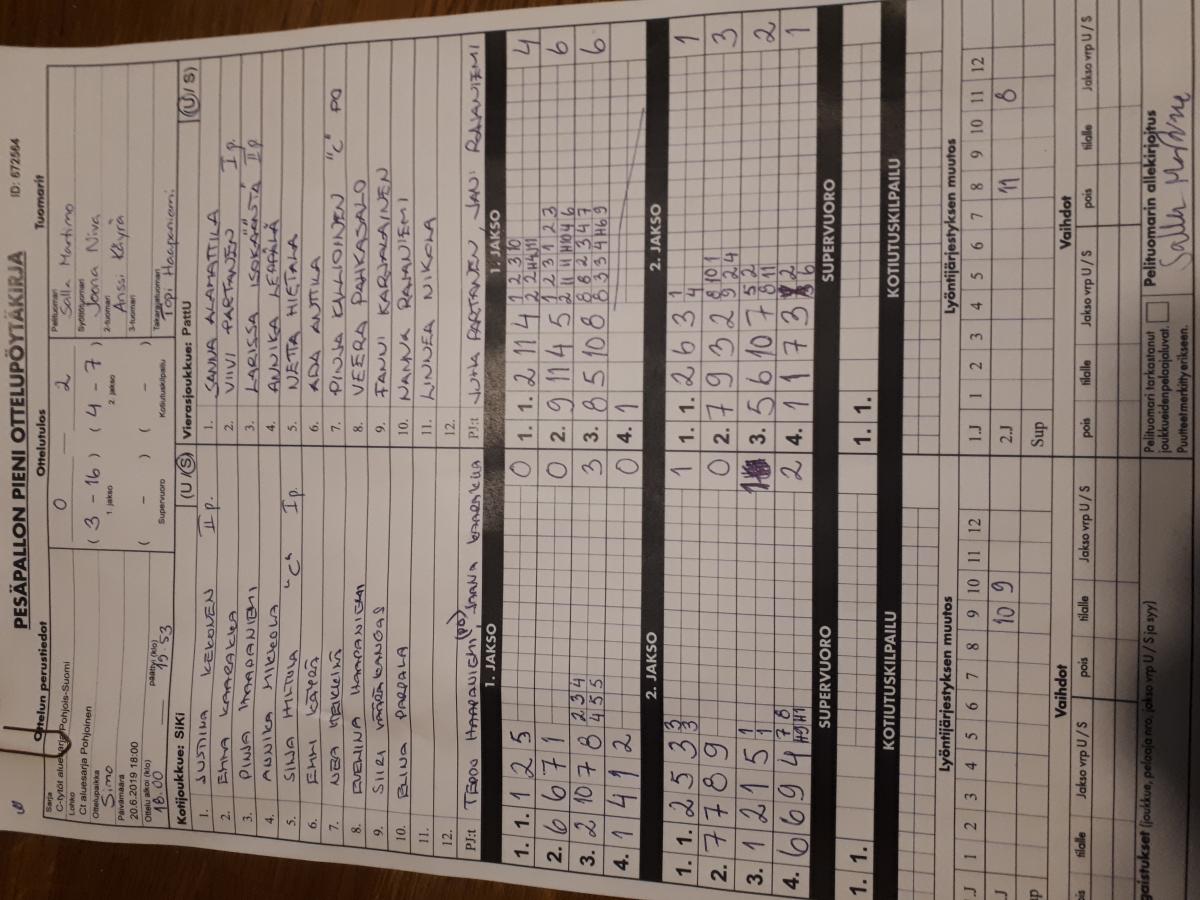 PESÄPALLON PIENI OTTELUPÖYTÄKIRJA ID: 672564
Ottelun perustiedot Ottelutulos Tuomarit
Sarja
C-tytöt aluesarja Pohjois-Suomi
Lohko
C1 aluesarja Pohjoinen
Ottelupaikka
Simo
Päivämäärä
20.6.2019 18:00
Ottelu alkoi (klo) päättyi (klo)
18.00 19.53
0 2
( 3 - 16 ) ( 4 - 7 )
1. jakso 2. jakso
( - ) ( - )
Supervuoro Kotiutuskilpailu
Pelituomari
Salla Martimo
Syöttötuomari
Joona Niva
2-tuomari
Anssi Käyrä
3-tuomari
Takarajatuomari
Topi Haapaniemi
Kotijoukkue: SiKi (U / S)
1. JUSTIINA KEKONEN II p.
2. EMMA KAARAKKA
3. PINJA HAAPANIEMI
4. ANNIKA MIKKOLA
5. SINJA HILTULA "C" I p.
6. EMMI KÄYRÄ
7. NEA
8. EVENINA HAAPANIEMI
9. SIIRI VÄÄRÄKANGAS
10. ELINA PARPALA
11.
12.
PJ:t TEPOO HAAPANIEMI (PO), JAANA KAARAKKA
Vierasjoukkue: Pattu (U / S)
1. SANNA ALAMATTILA
2. VIIVI PARTANEN I p.
3. LARISSA ISOKÄÄNTÄ II p
4. ANNIKA LEPPÄLÄ
5. NETTA HIETALA
6. ADA ANTTILA
7. PINJA KALLIOINEN "C" PO
8. VEERA PAHKASALO
9. FANNI KARJALAINEN
10. NANNA RAJANIEMI
11. LINNEA NIKOLA
12.
PJ:t JUHA PARTANEN, JANI RAJANIEMI
1. JAKSO 1. JAKSO
1. 1. 1 2 5 0
2. 6 6 7 1 0
3. 2 10 7 8 2 3 4 3
4 5 5
4. 1 4 1 2 0
1. 1. 2 11 4 4
2. 9 11 4 5 6
3. 8 5 10 8 6
4. 1
2. JAKSO 2. JAKSO
1. 1. 2 5 3 3 1
3
2. 7 7 8 9 0
3. 1 2 1 5 1 1
1
4. 6 6 9 4 7 8 2
1. 1. 2 6 3 1 1
4
2. 7 9 3 2 8 10 1 3
9 2 4
3. 5 6 10 7 5 2 2
8 11
4. 1 1 7 3 1
SUPERVUORO SUPERVUORO
1. 1. 1. 1.
KOTIUTUSKILPAILU KOTIUTUSKILPAILU
Lyöntijärjestyksen muutos Lyöntijärjestyksen muutos
1 2 3 4 5 6 7 8 9 10 11 12
10 9
1.J 1 2 3 4 5 6 7 8 9 10 11 12
2.J 11 8
Sup
Vaihdot Vaihdot
tilalle Jakso vrp U / S pois tilalle Jakso vrp U / S
pois tilalle Jakso vrp U / S pois tilalle Jakso vrp U / S
gaistukset (joukkue, pelaaja nro, jakso vrp U / S ja syy)
Pelituomari tarkastanut
joukkueiden pelaajaluvat.
Puutteet merkitty erikseen.
Pelituomarin allekirjoitus